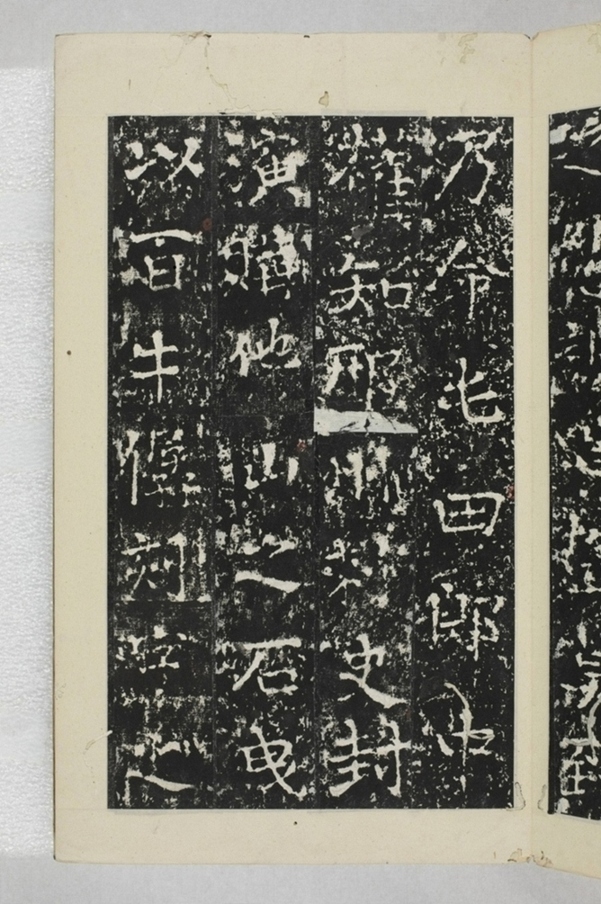 乃命屯田郎中
權知邢州刺史封
演購他山之石曳
以百牛僝刻字之